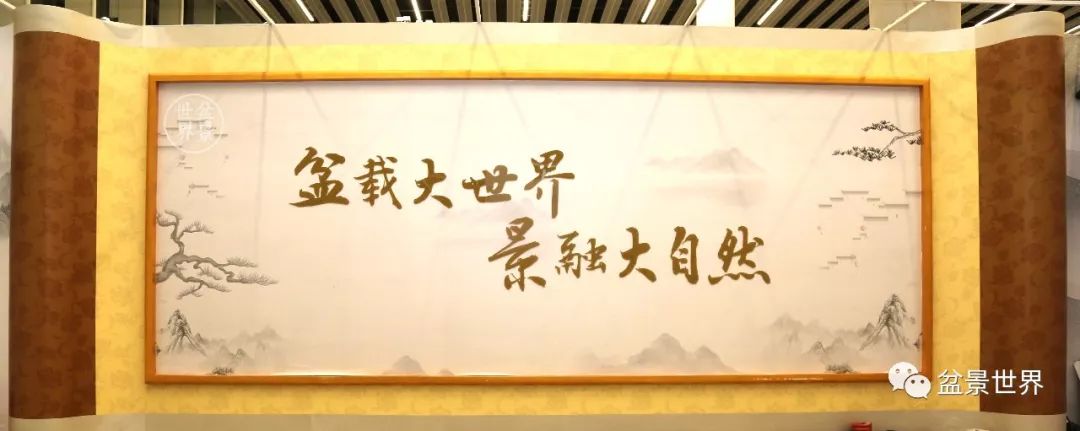 盆景
世界
盆载大世界
景融大自然
盆景世界